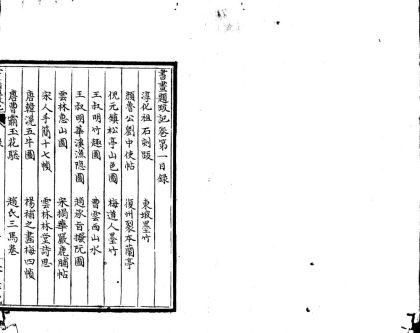 書畫題跋記卷第一目錄
淳化祖石刻跋　東坡墨竹
顏魯公劉中使帖　復州裂本蘭亭
倪元鎮松亭山色圖　梅道人墨竹
王叔明竹趣圖　曹雲西山水
王叔明華溪漁隱圖　趙承旨擬阮圖
雲林惠山圖　宋搨華嚴鹿脯帖
宋人手簡十七帳　雲林林堂詩思
唐韓滉五牛圖　楊補之畫梅四幀
唐曹霸玉花驄　趙氏三馬卷